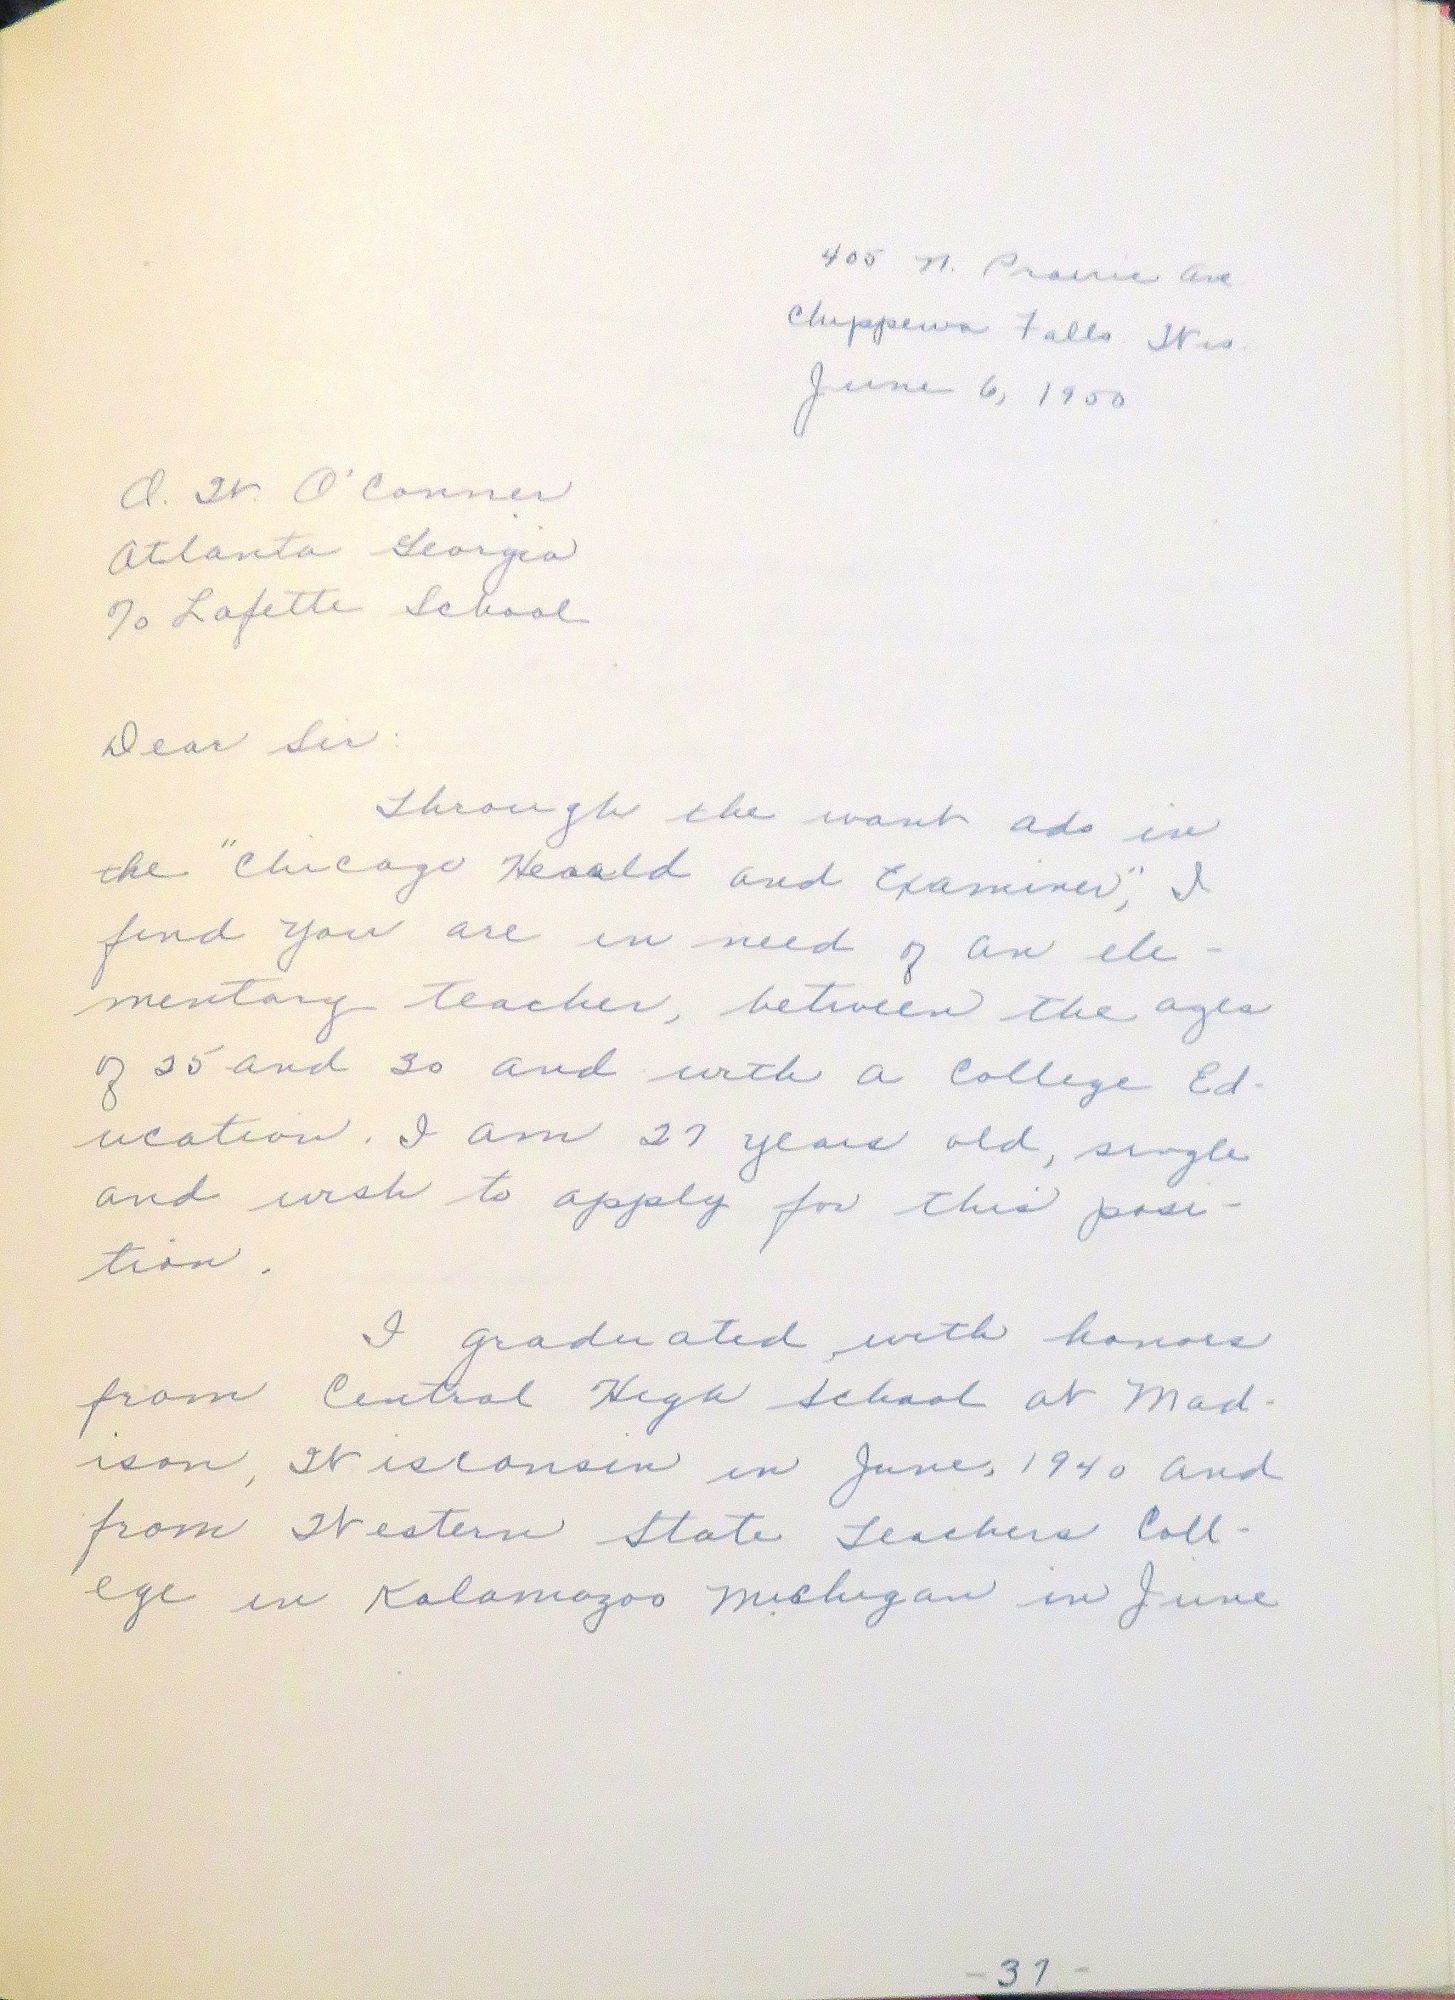 405 N. Prairie Ave
Chippewa Falls Wis.
June 6, 1950
O. W. O'Conner
Atlanta Georgia
℅ Lafette School
Dear Sir:
Through the want ads in
the "Chicago Herald and Examiner", I
find you are in need of an ele-
mentary teacher, between the ages
of 25 and 30 and with a College Ed-
ucation. I am 27 years old, single
and wish to apply for this posi-
tion.
I graduated with honors
from Central High School at Mad-
ison, Wisconsin in June, 1940 and
from Western State Teachers Coll-
ege in Kalamazoo Michigan in June
-37-